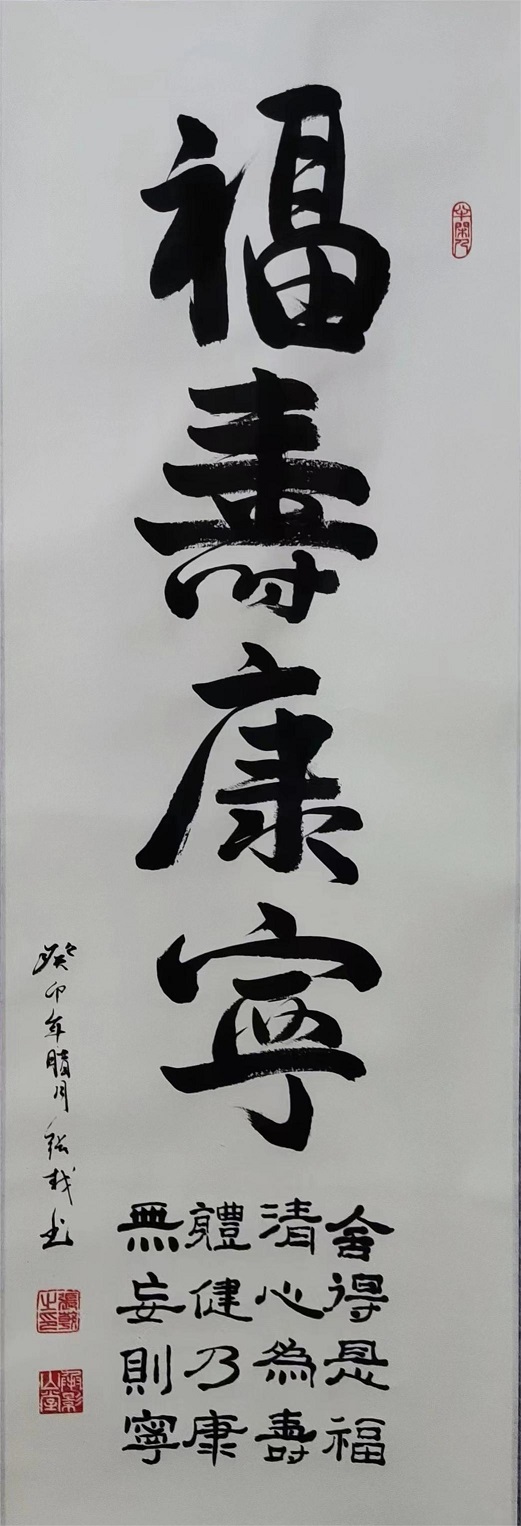 福壽康寧
舍得是福
清心為壽
體健乃康
無妄則寧
癸卯年腊月
书